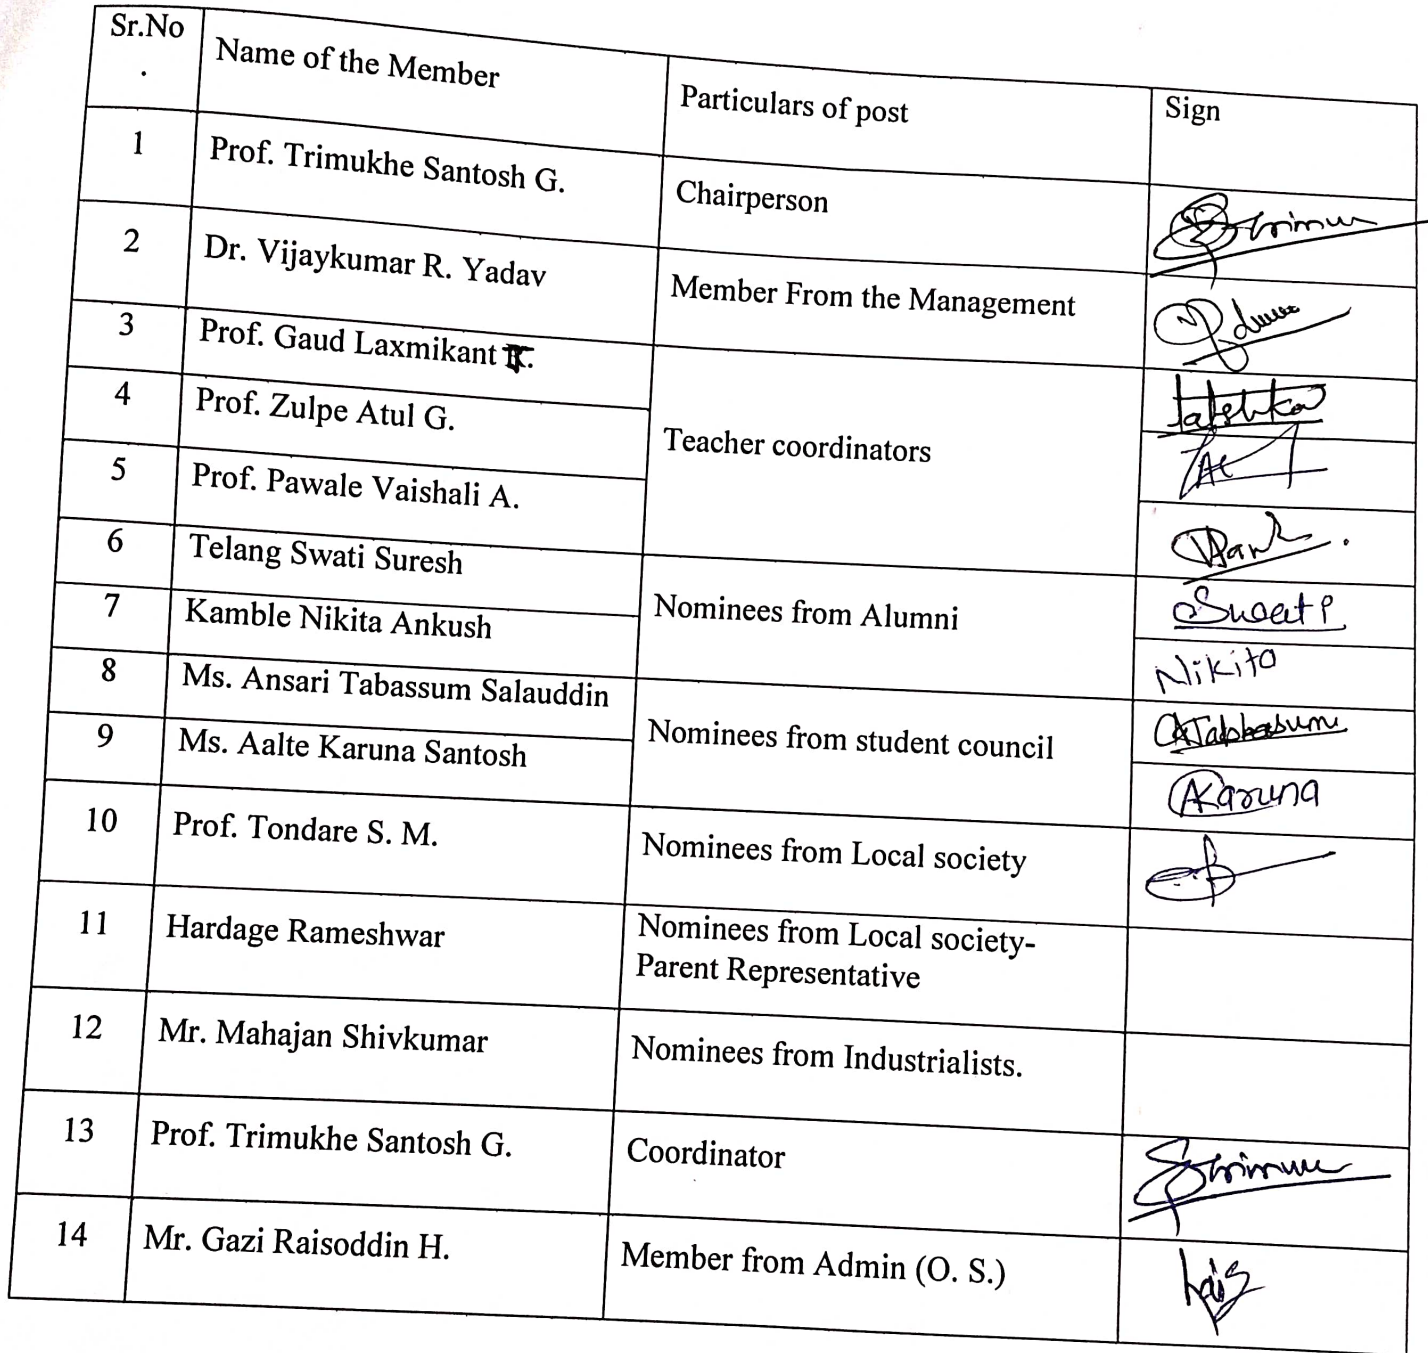 Sr.No
.
Name of the Member
Particulars of post
Sign
1
Prof. Trimukhe Santosh G.
Chairperson
2
Dr. Vijaykumar R. Yadav
Member From the Management
3
Prof. Gaud Laxmikant
4
Prof. Zulpe Atul G.
Teacher coordinators
5
Prof. Pawale Vaishali A.
6
Telang Swati Suresh
Nominees from Alumni
Swati
7
Kamble Nikita Ankush
Nikita
8
Ms. Ansari Tabassum Salauddin
Nominees from student council
9
Ms. Aalte Karuna Santosh
AKaruna
10
Prof. Tondare S. M.
Nominees from Local society
11
Hardage Rameshwar
Nominees from Local society-
Parent Representative
12
Mr. Mahajan Shivkumar
Nominees from Industrialists.
13
Prof. Trimukhe Santosh G.
Coordinator
14
Mr. Gazi Raisoddin H.
Member from Admin (O. S.)